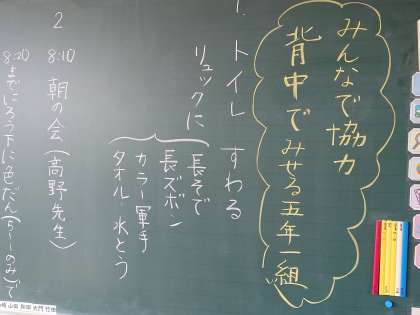 みんなで協力
背中でみせる五年一組
1. トイレ すわる
リュックに
長そで
長ズボン
カラー軍手
タオル・水とう
2 8:10 朝の会(高野先生)
8:20までにろう下に色だん(らーのみ)で